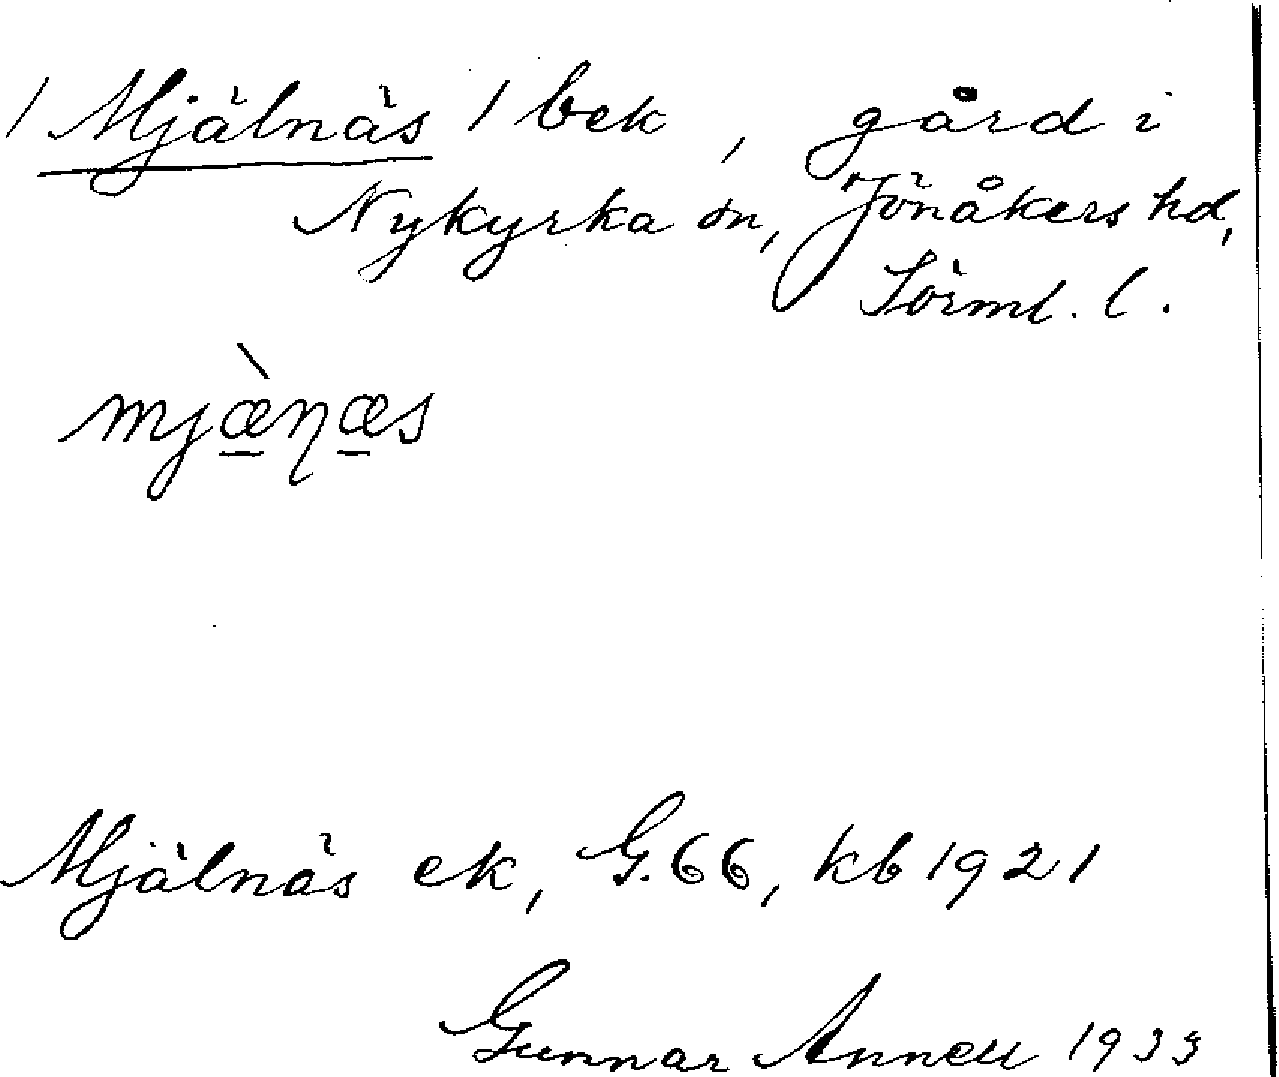 / Mjälnäs / bek, gård i
Nykyrka sn, Jönåkers hd,
Sörml. l.
mjæ̲̀ŋæ̲s
Mjälnäs ek, G. 66, kb 1921
Gunnar Annell 1933